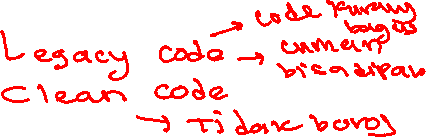 Legacy code → code kurang bagus
→ cuman bisa dipakai
Clean code
→ Tidak boros